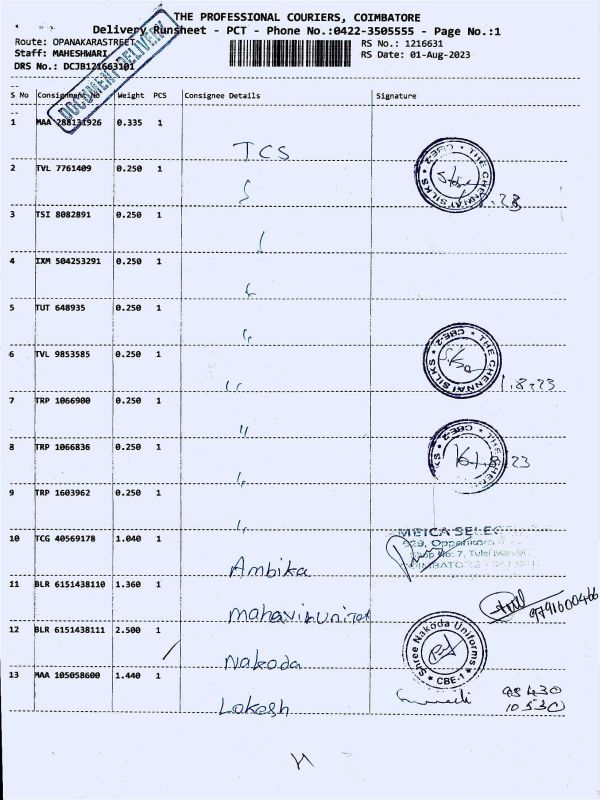 THE PROFESSIONAL COURIERS, COIMBATORE
Delivery Runsheet - PCT - Phone No.:0422-3505555 - Page No.:1
Route: OPANAKARASTREET
RS No.: 1216631
Staff: MAHESHWARI
RS Date: 01-Aug-2023
DRS No.: DCJB121663101
DOCUMENT DELIVERY
S No Consignment No Weight PCS Consignee Details Signature
1 MAA 288131926 0.335 1 TCS
2 TVL 7761409 0.250 1
THE CHENNAI SILKS * CBE-2 *
3 TSI 8082891 0.250 1
4 IXM 504253291 0.250 1
5 TUT 648935 0.250 1
6 TVL 9853585 0.250 1
THE CHENNAI SILKS * CBE-2 *
1.8.23
7 TRP 1066900 0.250 1 "
8 TRP 1066836 0.250 1
THE CBE-2
1.8.23
9 TRP 1603962 0.250 1
10 TCG 40569178 1.040 1 Ambika
MEICA SELEC
Shop No: 7, Tulsi
11 BLR 6151438110 1.360 1
9791600466
12 BLR 6151438111 2.500 1 Nakoda
Shree Nakoda Uniforms
* CBE-1 *
13 MAA 105058600 1.440 1 Lokesh